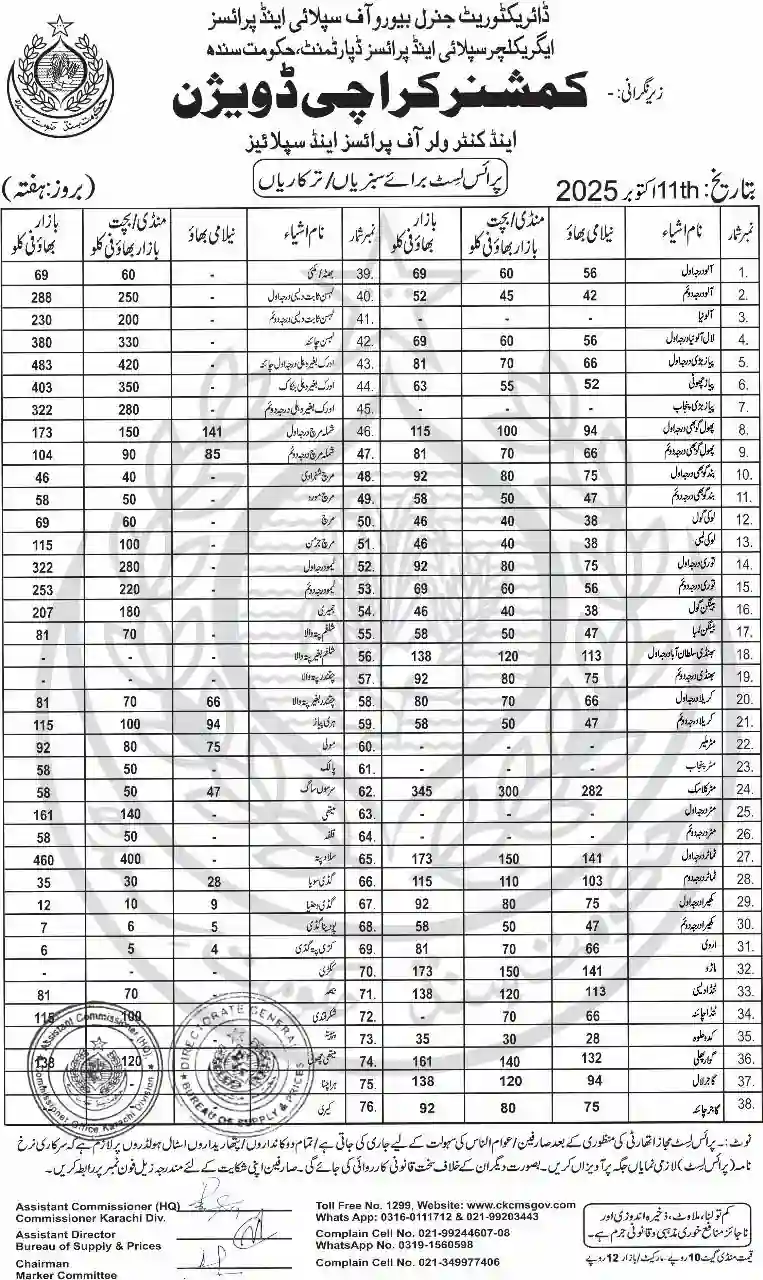 ڈائریکٹوریٹ جنرل بیورو آف سپلائی اینڈ پرائسز
ایگریکلچر سپلائی اینڈ پرائسز ڈپارٹمنٹ، حکومت سندھ
زیر نگرانی: - کمشنر کراچی ڈویژن
اینڈ کنٹرولر آف پرائسز اینڈ سپلائیز
بتاریخ: 11th اکتوبر 2025 پرائس لسٹ برائے سبزیاں/ترکاریاں (بروز: ہفتہ)
نمبر شمار نام اشیاء نیلامی بھاؤ منڈی/بچت بازار بھاؤ فی کلو بازار بھاؤ فی کلو نمبر شمار نام اشیاء نیلامی بھاؤ منڈی/بچت بازار بھاؤ فی کلو بازار بھاؤ فی کلو
1. آلو درجہ اول 56 60 69 39. - 60 69
2. آلو درجہ دوئم 42 45 52 40. لہسن ثابت دیسی درجہ اول - 250 288
3. آلو نیا - - - 41. لہسن ثابت دیسی درجہ دوئم - 200 230
4. لال آلو نیا درجہ اول 56 60 69 42. لہسن چائنہ - 330 380
5. پیاز بڑی درجہ اول 66 70 81 43. ادرک بغیر دھلی درجہ اول چائنہ - 420 483
6. پیاز چھوٹی 52 55 63 44. ادرک بغیر دھلی بنکاک - 350 403
7. پیاز بڑی پنجاب - - - 45. ادرک بغیر دھلی درجہ دوئم - 280 322
8. پھول گوبھی درجہ اول 94 100 115 46. شملہ مرچ درجہ اول 141 150 173
9. پھول گوبھی درجہ دوئم 66 70 81 47. شملہ مرچ درجہ دوئم 85 90 104
10. بند گوبھی درجہ اول 75 80 92 48. مرچ شہزادی - 40 46
11. بند گوبھی درجہ دوئم 47 50 58 49. مرچ مورد - 50 58
12. لوکی گول 38 40 46 50. مرچ - 60 69
13. لوکی لمبی 38 40 46 51. مرچ جرمن - 100 115
14. توری درجہ اول 75 80 92 52. لیمو درجہ اول - 280 322
15. توری درجہ دوئم 56 60 69 53. لیمو درجہ دوئم - 220 253
16. بینگن گول 38 40 46 54. جمیری - 180 207
17. بینگن لمبا 47 50 58 55. شلغم پتہ والا - 70 81
18. بھنڈی سلطان آباد درجہ اول 113 120 138 56. شلغم بغیر پتہ والا - - -
19. بھنڈی درجہ دوئم 75 80 92 57. چقندر پتہ والا - - -
20. کریلا درجہ اول 66 70 80 58. چقندر بغیر پتہ والا 66 70 81
21. کریلا درجہ دوئم 47 50 58 59. ہری پیاز 94 100 115
22. مٹر ملیر - - - 60. مولی 75 80 92
23. مٹر پنجاب - - - 61. پالک - 50 58
24. مٹر کلاسک 282 300 345 62. سرسوں ساگ 47 50 58
25. مٹر درجہ اول - - - 63. میتھی - 140 161
26. مٹر درجہ دوئم - - - 64. قلفہ - 50 58
27. ٹماٹر درجہ اول 141 150 173 65. سلاد پتہ - 400 460
28. ٹماٹر درجہ دوم 103 110 115 66. گڈی سویا 28 30 35
29. کھیرا درجہ اول 75 80 92 67. گڈی دھنیا 9 10 12
30. کھیرا درجہ دوئم 47 50 58 68. پودینا گڈی 5 6 7
31. اروی 66 70 81 69. کڑی پتہ گڈی 4 5 6
32. 141 150 173 70. ککڑی - - -
33. ٹنڈا دیسی 113 120 138 71. - 70 81
34. ٹنڈا چائنہ 66 70 - 72. شکرقندی 100 115
35. کدو حلوہ 28 30 35 73.
36. گوار پھلی 132 140 161 74. میتھی چھوٹی 120 138
37. گاجر لال 94 120 138 75. ہرا چنا
38. گاجر چائنہ 75 80 92 76. کیری
نوٹ: - پرائس لسٹ مجاز اتھارٹی کی منظوری کے بعد صارفین/عوام الناس کی سہولت کے لیے جاری کی جاتی ہے/تمام دوکانداروں/پتھاریداروں اسٹال ہولڈروں پر لازم ہے کہ سرکاری نرخ
نامہ (پرائس لسٹ) لازمی نمایاں جگہ پر آویزاں کریں۔ بصورت دیگر ان کے خلاف سخت قانونی کارروائی کی جائے گی۔ صارفین اپنی شکایت کے لئے مندرجہ زیل فون نمبر پر رابطہ کریں۔
Assistant Commissioner (HQ)
Commissioner Karachi Div.
Assistant Director
Bureau of Supply & Prices
Chairman
Marker Committee
Toll Free No. 1299, Website: www.ckcmsgov.com
Whats App: 0316-0111712 & 021-99203443
Complain Cell No. 021-99244607-08
WhatsApp No. 0319-1560598
Complain Cell No. 021-349977406
کم تولنا، ملاوٹ، ذخیرہ اندوزی اور
ناجائز منافع خوری مذہبی و قانونی جرم ہے۔
قیمت منڈی گیٹ 10 روپے۔ مارکیٹ/بازار 12 روپے
Assistant Commissioner (HQ)
Commissioner Office Karachi Division
DIRECTORATE GENERAL
BUREAU OF SUPPLY & PRICES